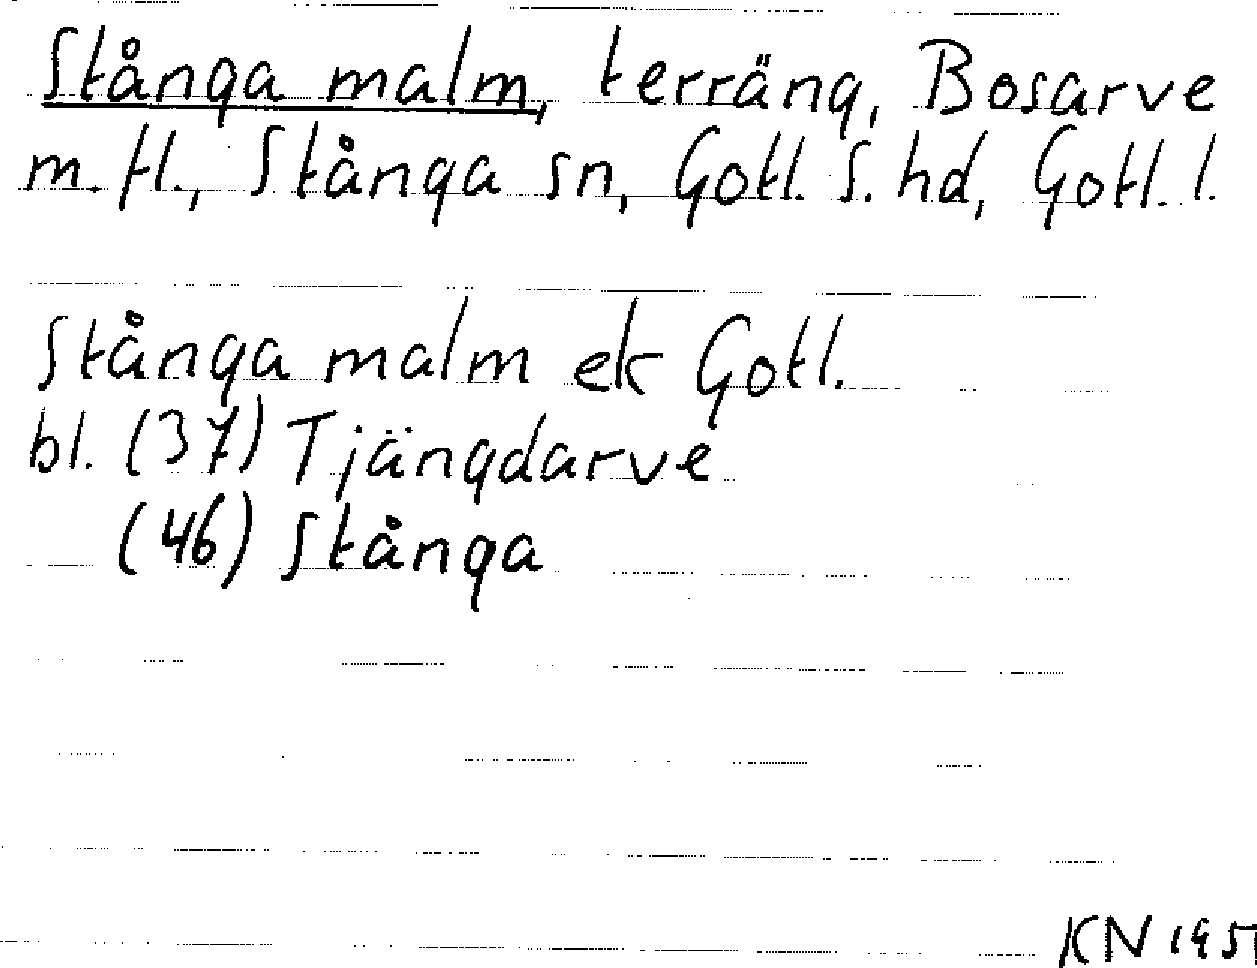 Stånga malm, terräng, Bosarve
m.fl., Stånga sn, Gotl. S. hd, Gotl. l.
Stånga malm ek Gotl.
bl. (37) Tjängdarve
(46) Stånga
KN 1951